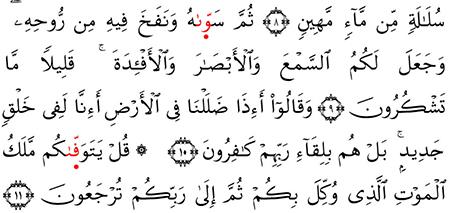 سُلَٰلَةٖ مِّن مَّآءٖ مَّهِينٖ ٨ ثُمَّ سَوَّىٰهُ وَنَفَخَ فِيهِ مِن رُّوحِهِۦۖ
وَجَعَلَ لَكُمُ ٱلسَّمۡعَ وَٱلۡأَبۡصَٰرَ وَٱلۡأَفۡـِٔدَةَۚ قَلِيلٗا مَّا
تَشۡكُرُونَ ٩ وَقَالُوٓاْ أَءِذَا ضَلَلۡنَا فِي ٱلۡأَرۡضِ أَءِنَّا لَفِي خَلۡقٖ
جَدِيدِۭۚ بَلۡ هُم بِلِقَآءِ رَبِّهِمۡ كَٰفِرُونَ ١٠ ۞ قُلۡ يَتَوَفَّىٰكُم مَّلَكُ
ٱلۡمَوۡتِ ٱلَّذِي وُكِّلَ بِكُمۡ ثُمَّ إِلَىٰ رَبِّكُمۡ تُرۡجَعُونَ ١١